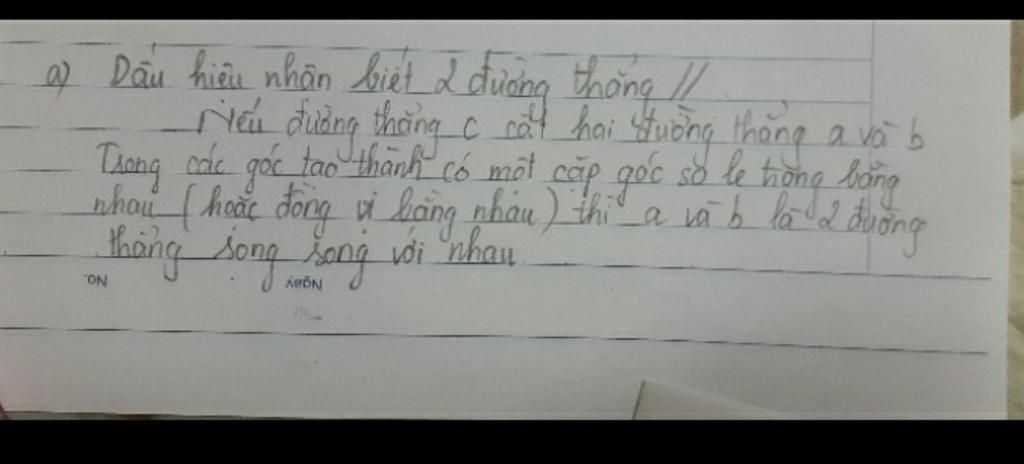 a) Dấu hiệu nhận biết 2 đường thẳng //
Nếu đường thẳng c cắt hai đường thẳng a và b
Trong các góc tạo thành có một cặp góc so le trong bằng
nhau (hoặc đồng vị bằng nhau) thì a và b là 2 đường
thẳng song song với nhau
NO.
Ngày